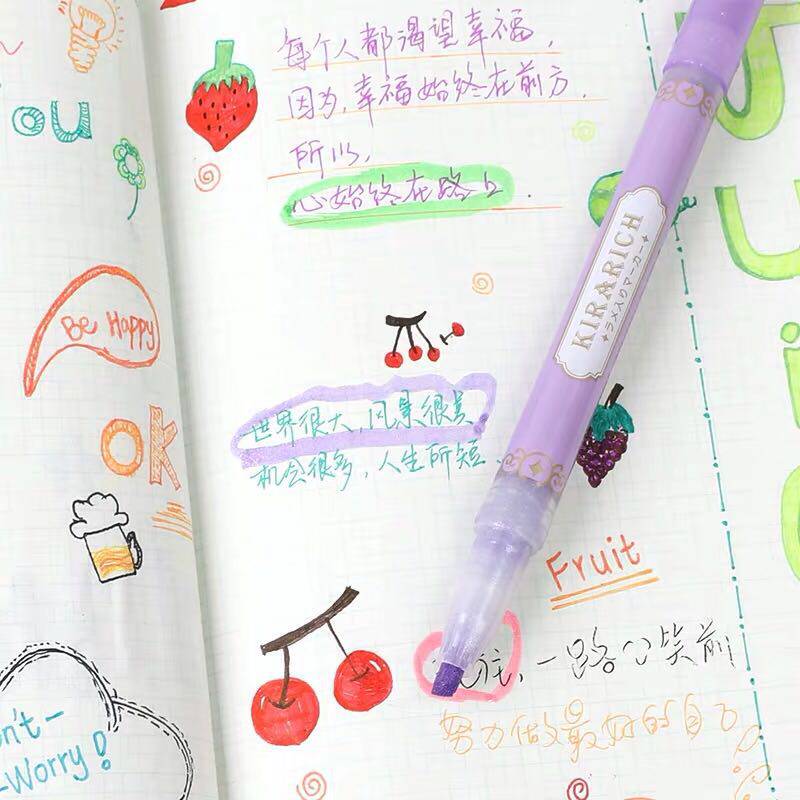 ou
Be Happy
OK
on't-
-Worry!
每个人都渴望幸福,
因为,幸福始终在前方.
所以,
心始终在路上.
世界很大,风景很美
机会很多,人生所短.
Fruit
往,一路心笑前
努力做最好的自己
KIRARICH
ラメ入りマーカー